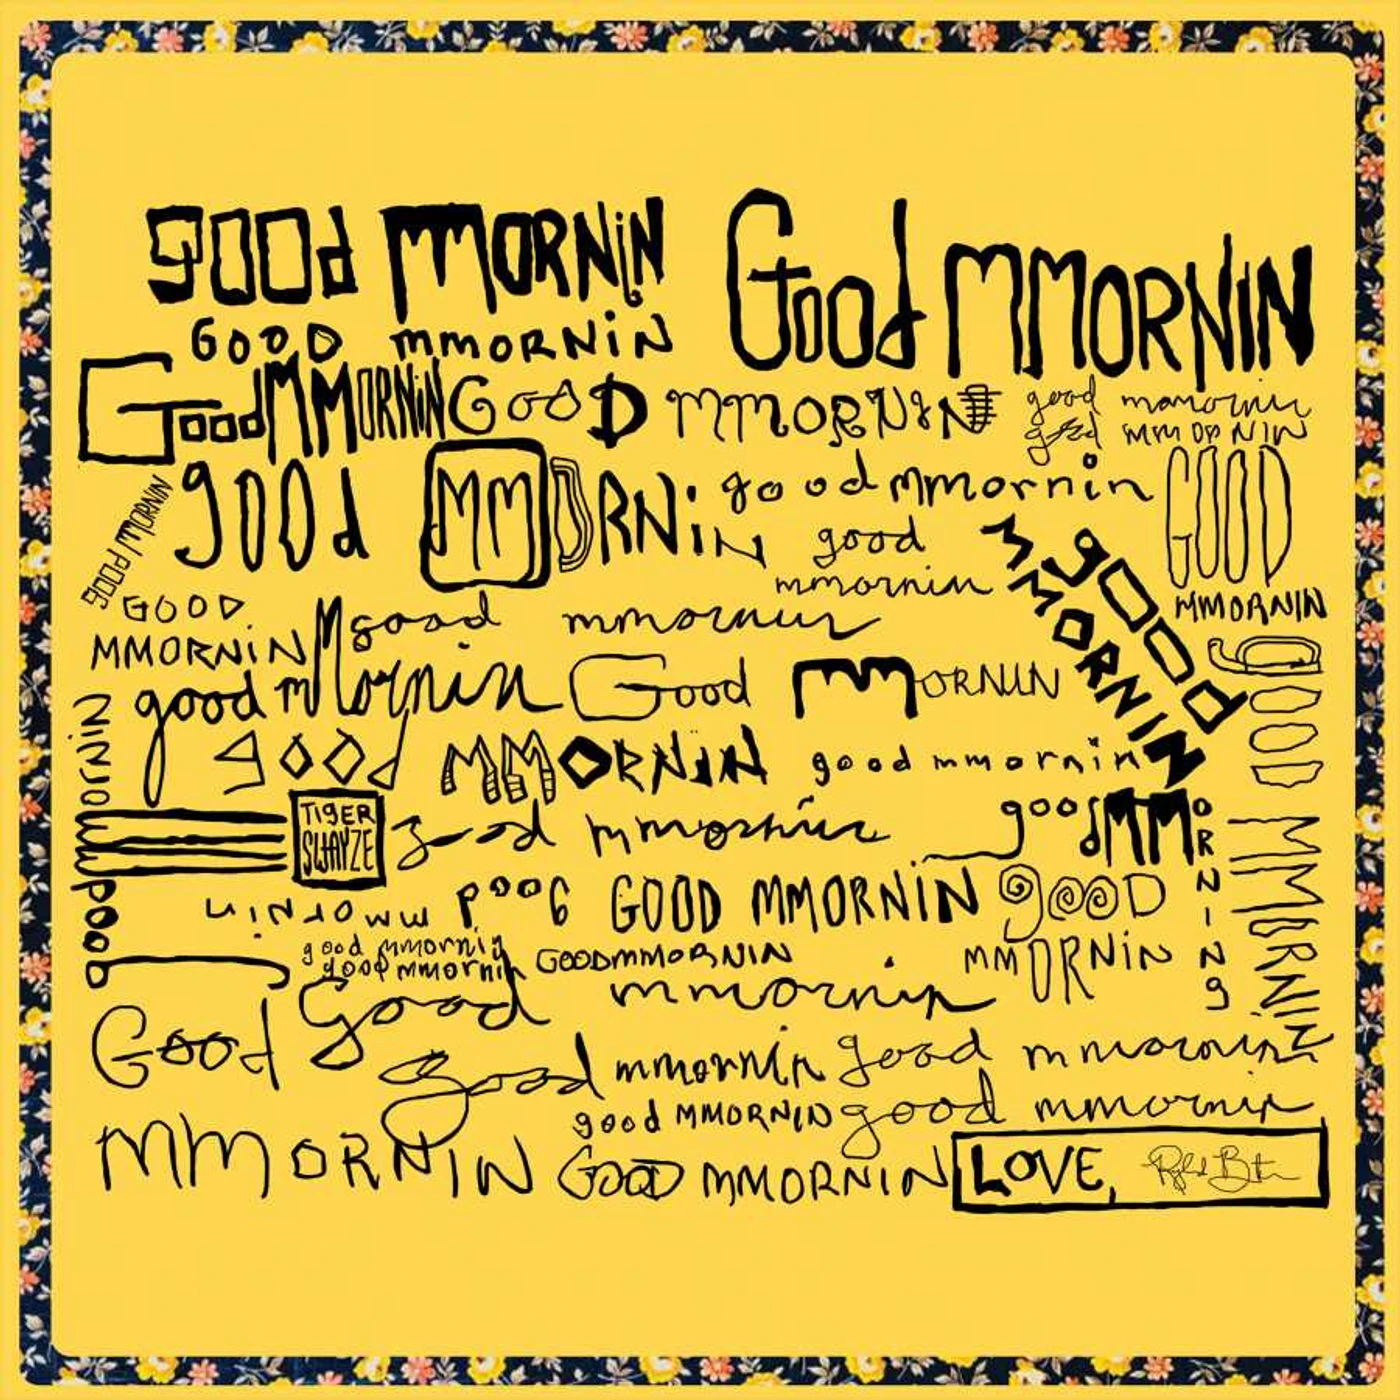 good mmORNiN
Good MMORNIN
GOOD mmORNiN
Good MMORNiN
GOOD MMORNIN
good
good MMORNIN
good MMORNiN
good mmornin
GOOD
MMORNIN
good mmORNIN
good
mmornin
good
MMORNIN
GOOD
MMORNiN
good
good mMornin
Good MMORNIN
good MMORNIN
good mmornin
good MMORNINg
good mmornin
TIgER
SWAYZE
good
good mmornin
GOOD MMORNIN
gOOD
MMORNiN
GOOD MMORNIN
mmorNin gooD
good mmornin
good mmornin
GOODMMORNIN
Good
MMORNIN
good mmornin
good mmornin
good mmornin
good MMORNIN
good mmornin
GOOD MMORNIN
LOVE,